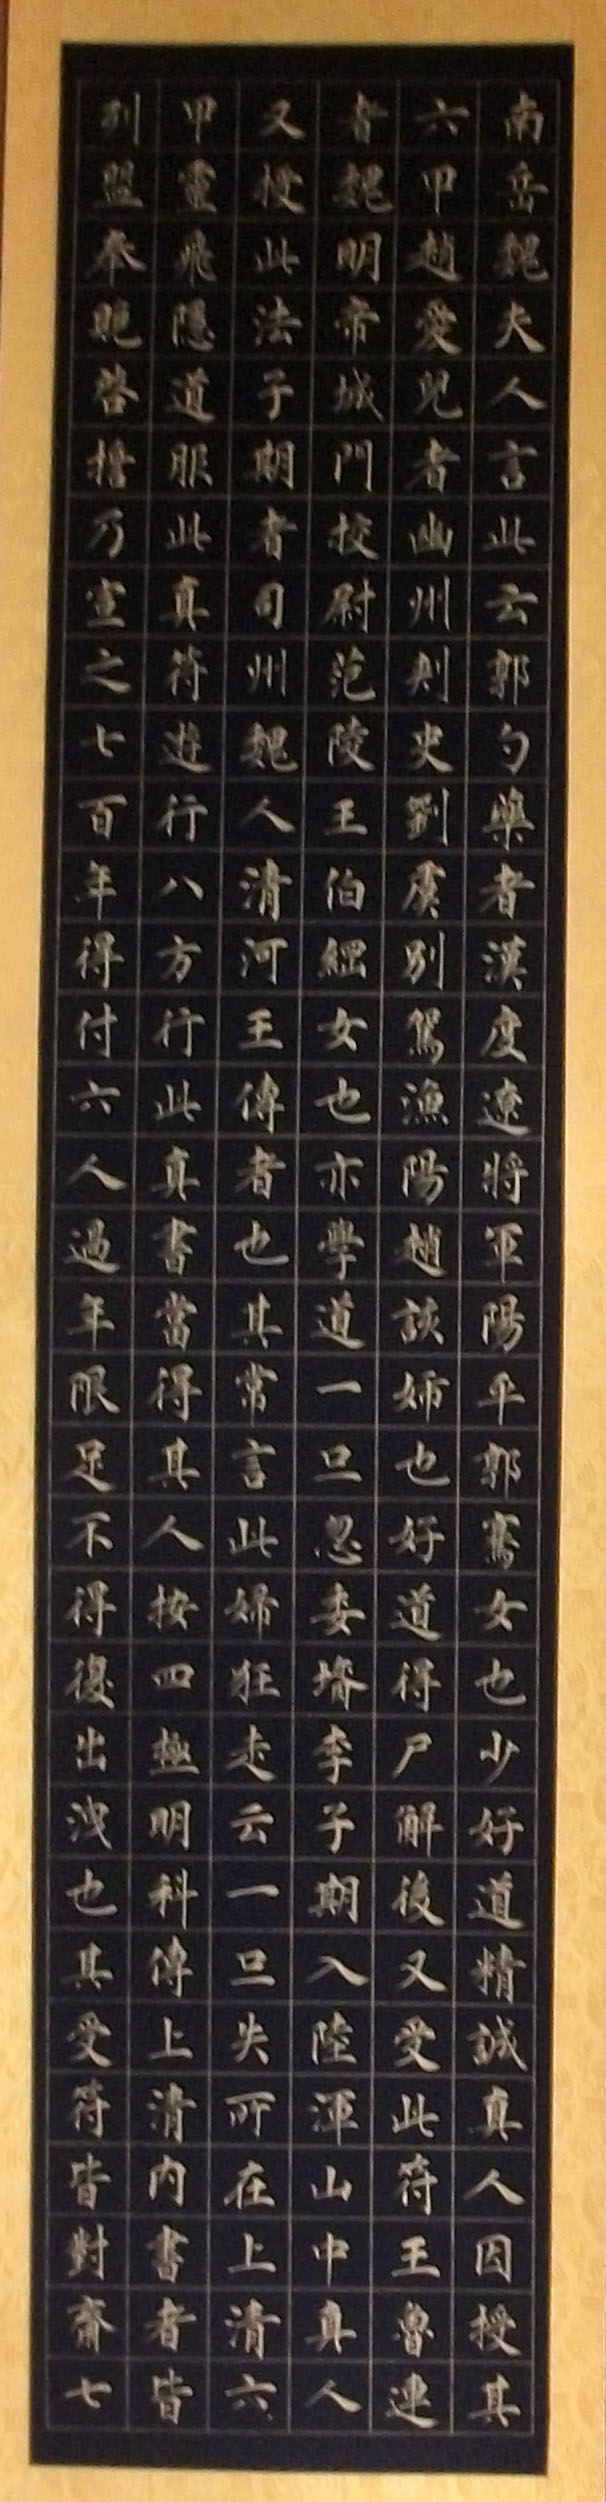 南岳魏夫人言此云郭勺藥者漢度遼將軍陽平郭騫女也少好道精誠真人因授其
六甲趙愛兒者幽州刾史劉虞別駕漁陽趙該姉也好道得尸解後又受此符王魯連
者魏明帝城門挍尉范陵王伯綱女也亦學道一旦忽委壻李子期入陸渾山中真人
又授此法子期者司州魏人清河王傅者也其常言此婦狂走云一旦失所在上清六
甲靈飛隱道服此真符遊行八方行此真書當得其人按四極明科傳上清內書者皆
列盟奉跪啓擔乃宣之七百年得付六人過年限足不得復出洩也其受符皆對齋七